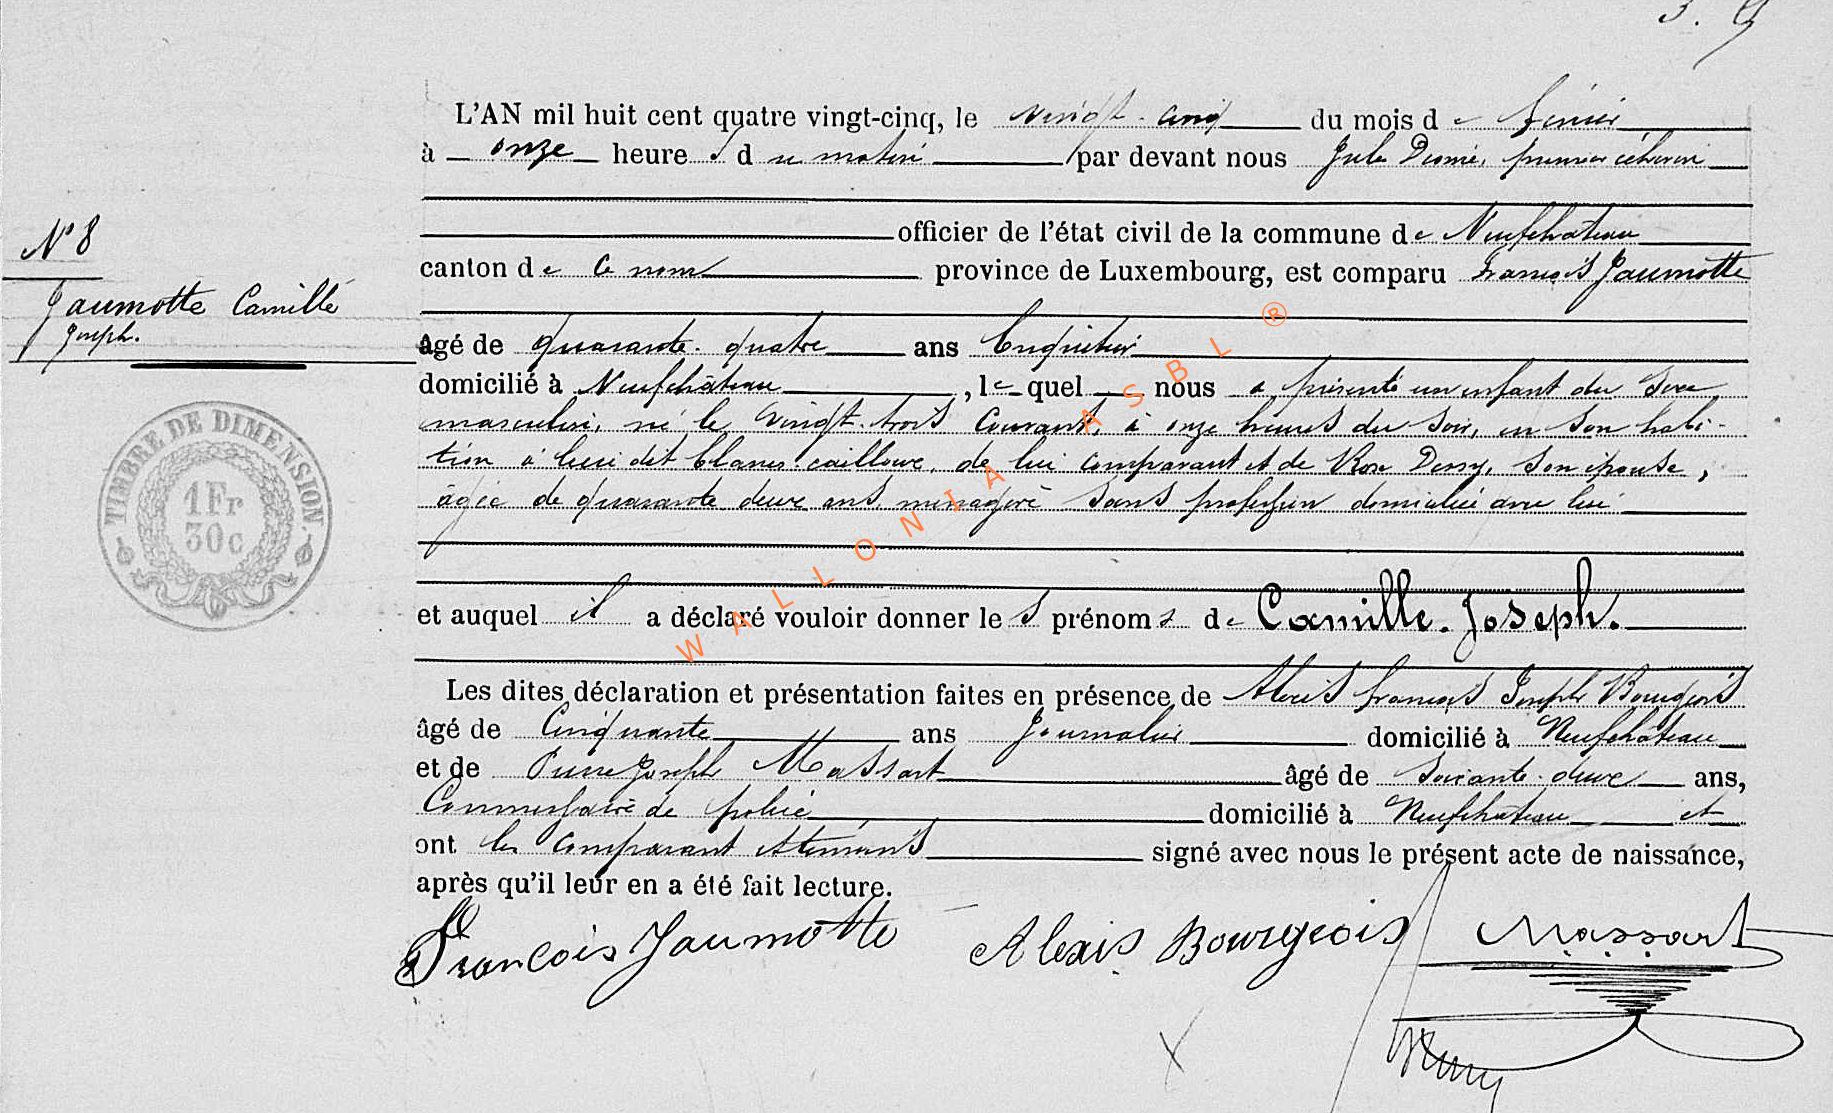 L'AN mil huit cent quatre vingt-cinq, le vingt-cinq du mois de février
à onze heures du matin par devant nous Jules premier échevin
officier de l'état civil de la commune de Neufchâteau
N° 8
canton de ce nom province de Luxembourg, est comparu François Jaumotte
Jaumotte Camille
Joseph.
âgé de quarante-quatre ans
domicilié à Neufchâteau, lequel nous a présenté un enfant du sexe
masculin, né le vingt-trois courant, à onze heures du soir, en son habi-
tion à lieu dit blancs-cailloux, de lui comparant et de Rose son épouse,
âgée de quarante deux ans ménagère sans profession domiciliée avec lui
TIMBRE DE DIMENSION.
1 Fr
30 c
et auquel il a déclaré vouloir donner les prénoms de Camille-Joseph.
Les dites déclaration et présentation faites en présence de Alexis François Joseph Bourgeois
âgé de cinquante ans Journalier domicilié à Neufchâteau
et de Pierre Joseph Massart âgé de soixante-deux ans,
Commissaire de police domicilié à Neufchâteau et
ont les comparant et témoins signé avec nous le présent acte de naissance,
après qu'il leur en a été fait lecture.
François Jaumotte Alexis Bourgeois Massart
WALLONIA ASBL ®